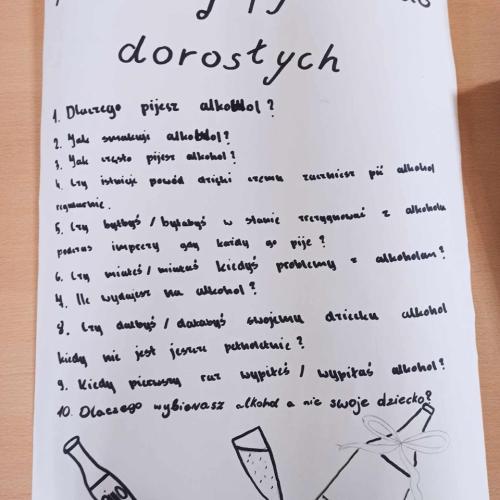 dorosłych
1. Dlaczego pijesz alkohol?
2. Jak smakuje alkohol?
3. Jak często pijesz alkohol?
4. Czy istnieje powód dzięki czemu zaczniesz pić alkohol
regularnie.
5. Czy byłbyś / byłabyś w stanie zrezygnować z alkoholu
podczas imprezy gdy każdy go pije?
6. Czy miałeś / miałaś kiedyś problemy z alkoholem?
7. Ile wydajesz na alkohol?
8. Czy dałbyś / dałabyś swojemu dziecku alkohol
kiedy nie jest jeszcze pełnoletnie?
9. Kiedy pierwszy raz wypiłeś / wypiłaś alkohol?
10. Dlaczego wybierasz alkohol a nie swoje dziecko?